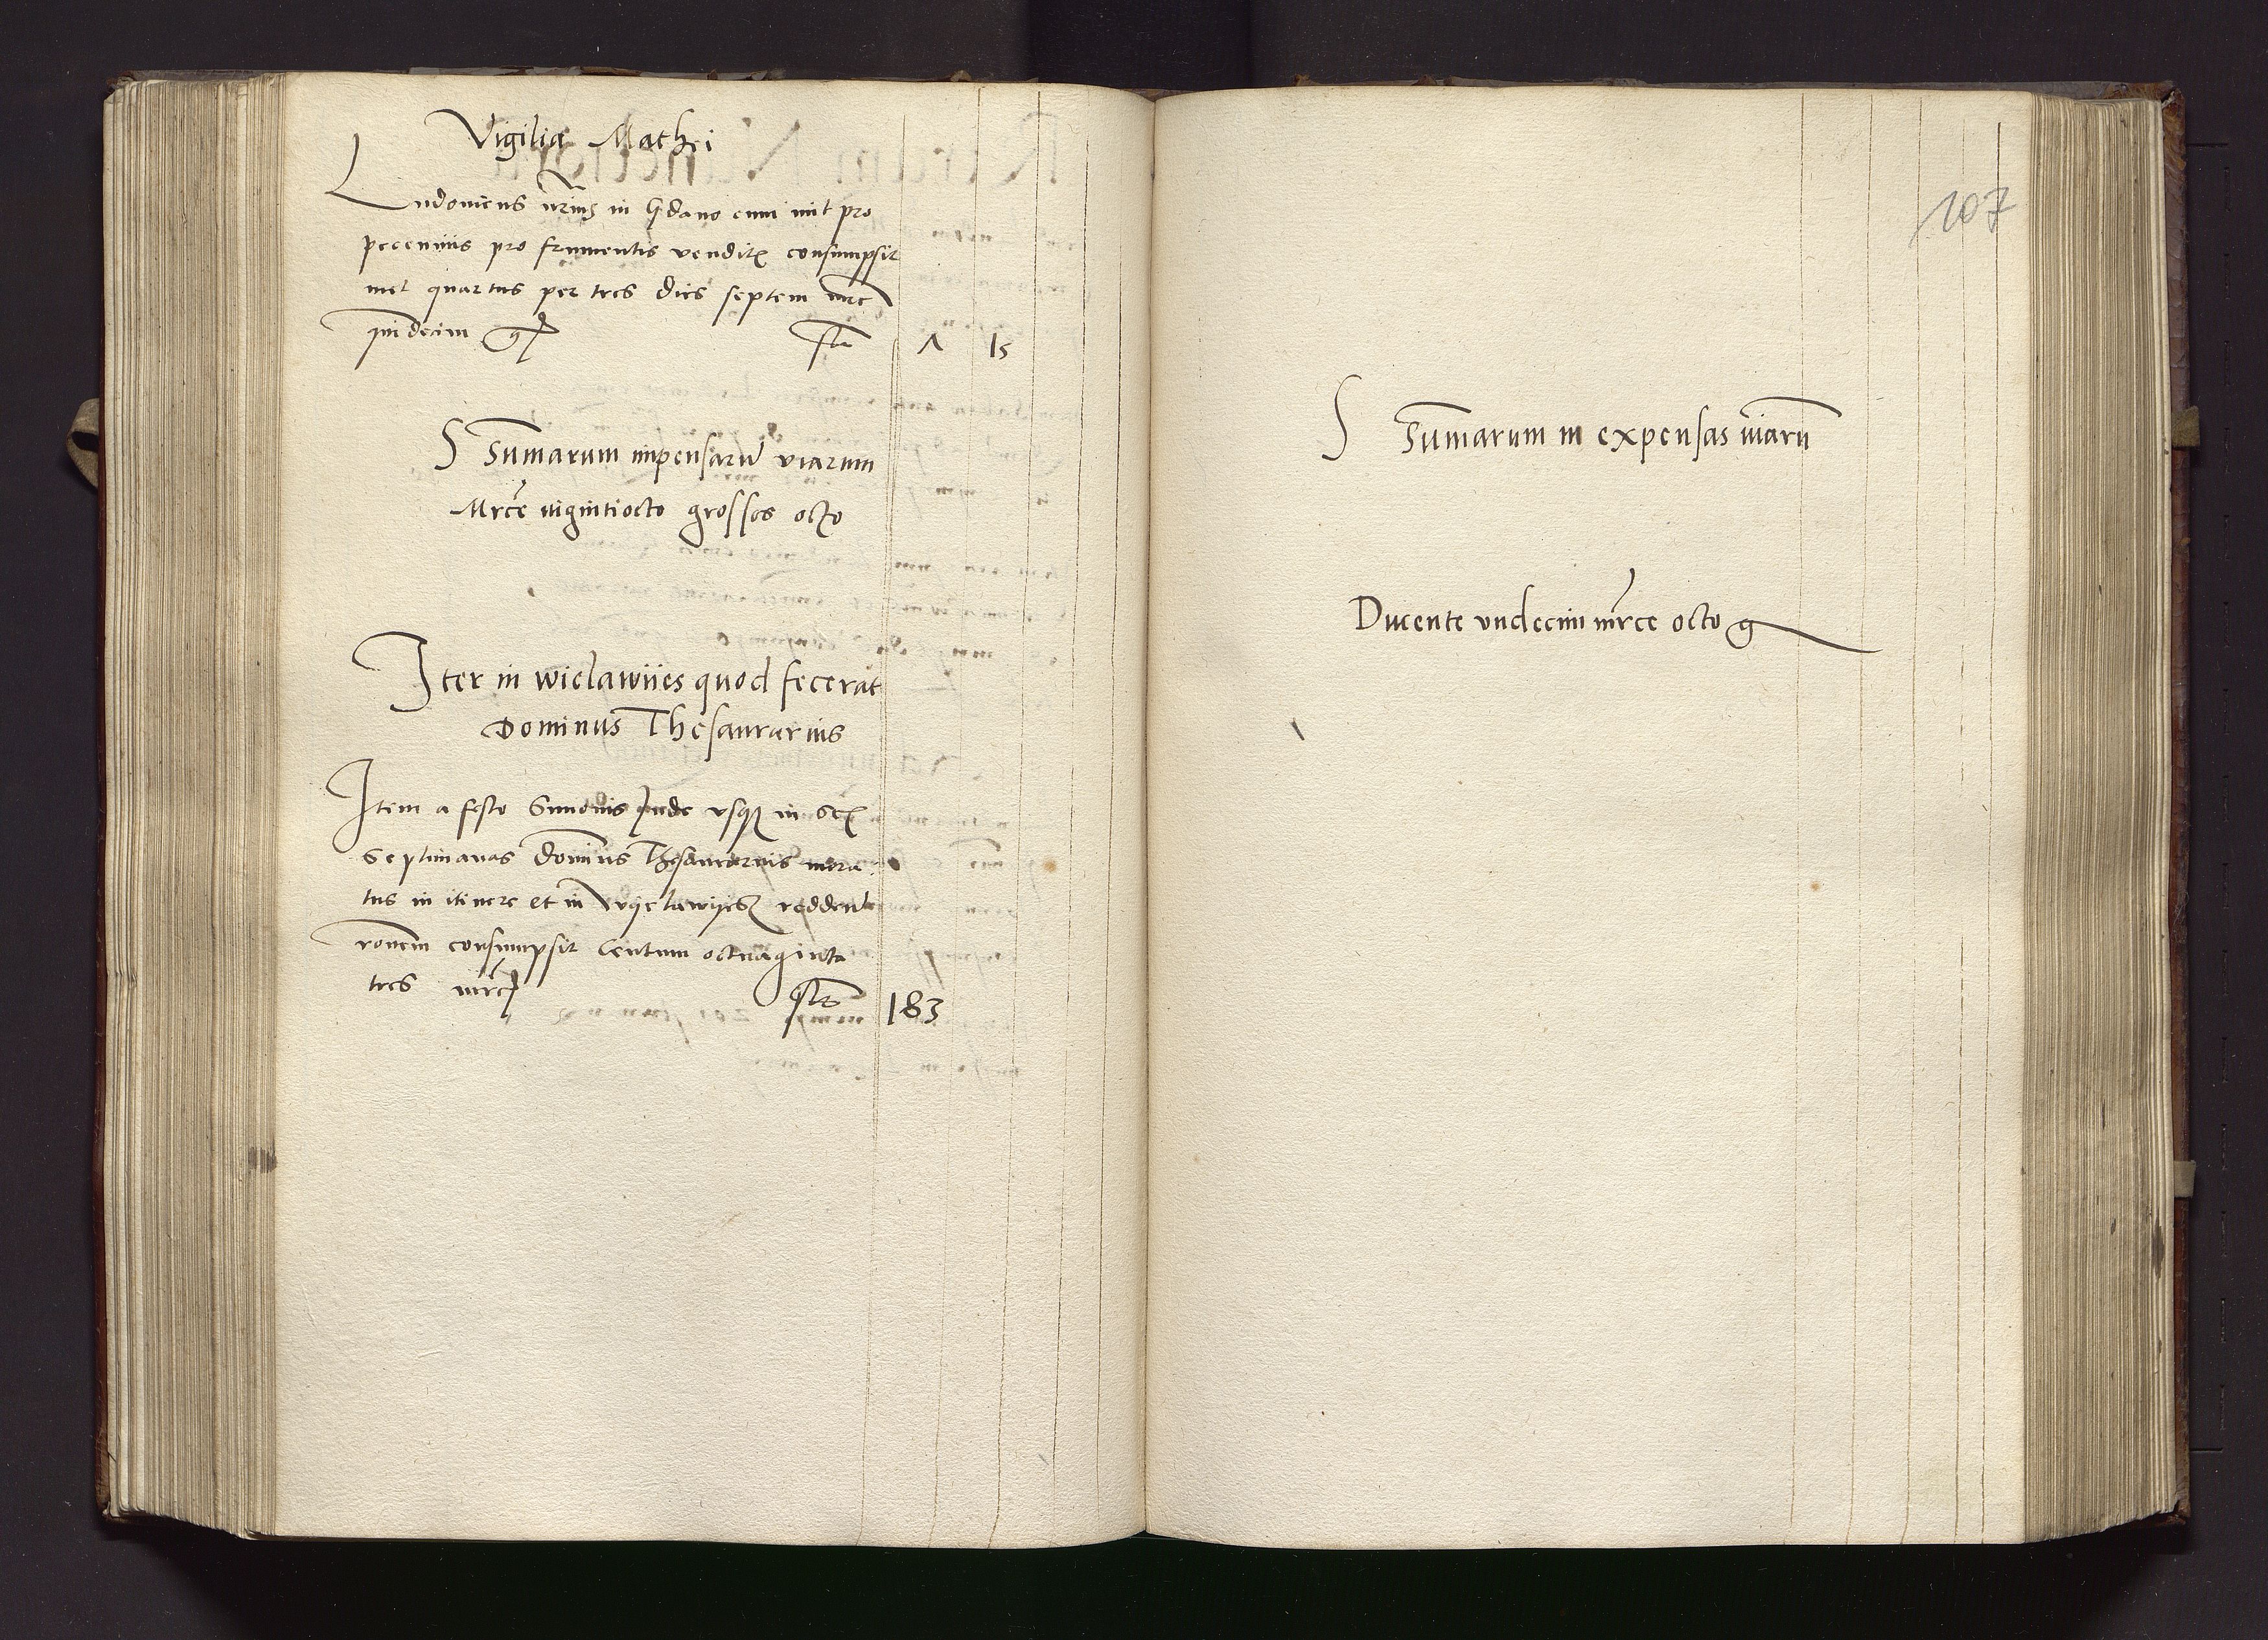 Vigilia Mathei
Ludovicus nrius in Gdano cum mit pro
pecuniis pro frumentis vendit consumpsit
met quartus per tres dies septem mrc
quindecim g
fct Λ 15
S Summarum impensaru viarum
Mrce vigintiocto grosses octo
Iter in wielawiies quod fecerat
Dominus Thesaurarius
Item a festo Simonis Jude usq in sex
septimanas dominus Thesaurarius mora
tus in itinere et in wyelawyes reddent
ronem consumpsit Centum octuaginta
tres mrc
fct 183
107
S Summarum in expensas viaru
Ducente undecim mrce octo g